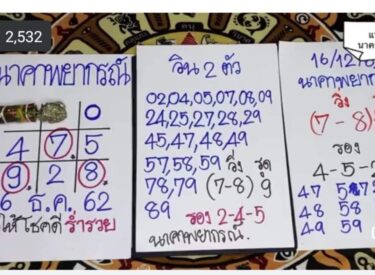 2,532
นาคาพยากรณ์
0
4 7 5
9 2 8
6 ธ.ค. 62
ให้โชคดี ร่ำรวย
วิน 2 ตัว
02,04,05,07,08,09
24,25,27,28,29
45,47,48,49
57,58,59 วิ่ง ชุด
78,79 (7-8) 9
89 รอง 2-4-5
นาคาพยากรณ์.
16/12/6
นาคาพยากร
วิ่ง
(7-8)
รอง
4-5-2
47 57
48 58
49 59
แ
นาค